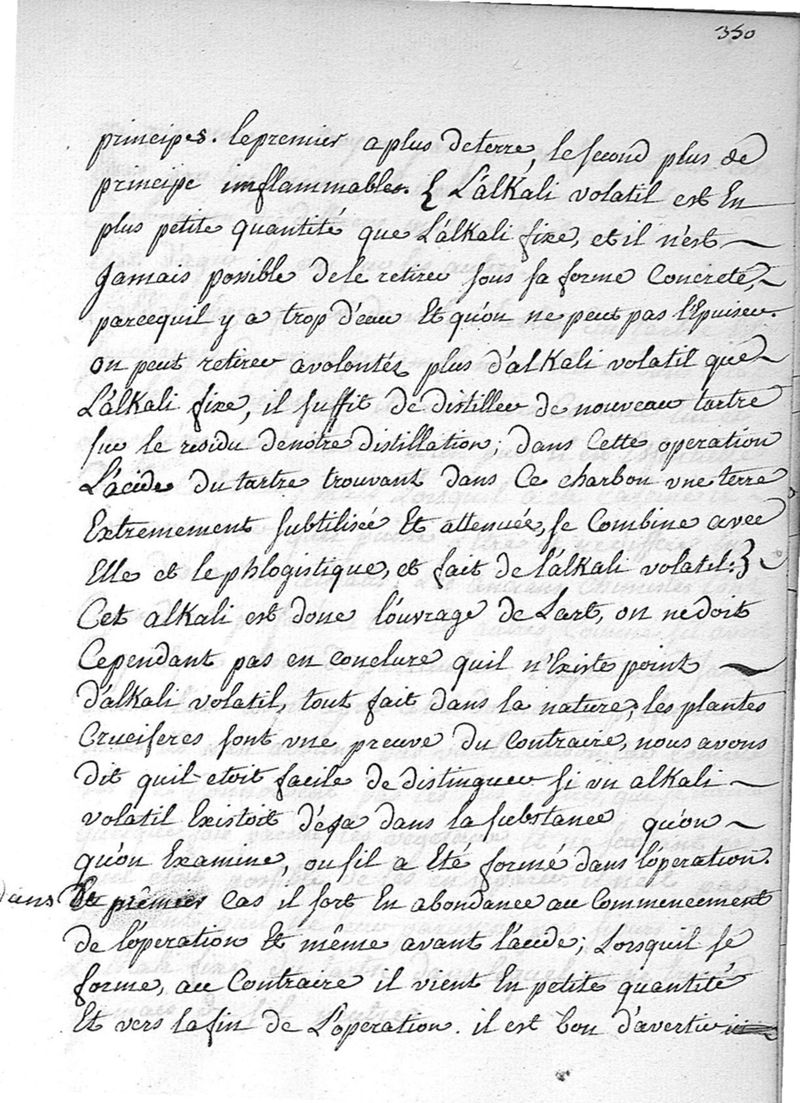 350
principes. le premier a plus de terre, le second plus de
principe inflammable. { L'álkali volatil est En
plus petite quantité que L'álkali fixe, et il n'est
Jamais possible de le retirer sous sa forme Concrete,
parcequil y a trop d'eau Et qu'on ne peut pas l'Epuiser.
on peut retirer a volonté plus d'alkali volatil que
L'álkali fixe, il suffit de distiller de nouveau tartre
sur le residu de nôtre distillation; dans Cette operation
L'acide du tartre trouvant dans Ce charbon une terre
Extremement subtilisée Et attenuée, se Combine avec
Elle et le phlogistique, et fait de l'álkali volatil. }
Cet alkali est donc l'ouvrage de L'art, on ne doit
Cependant pas en conclure quil n'Existe point
d'álkali volatil, tout fait dans la nature, les plantes
Cruciferes sont une preuve du Contraire, nous avons
dit quil etoit facile de distinguer si un alkali
volatil Existoit déja dans la substance qu'on
qu'on Examine, ou s'il a Eté formé dans l'operation.
dans le prêmier Cas il sort En abondance au Commencement
de l'operation Et même avant l'acide; Lorsquil se
forme, au Contraire il vient En petite quantité
Et vers la fin de L'operation. il est bon d'avertir